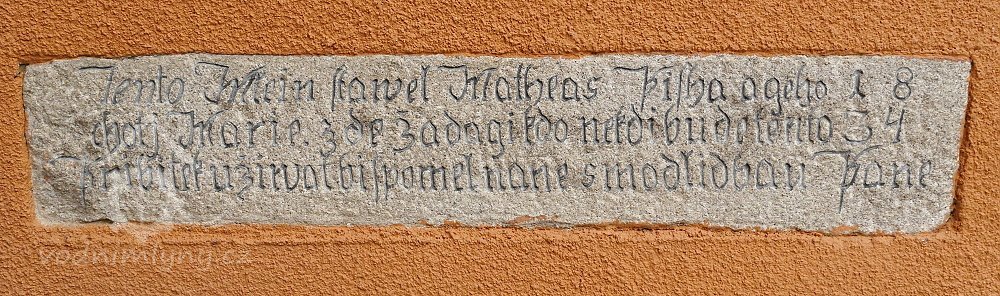 Tento Mlein stawel Matheas Pisha a geho 1 8
chotj Marie. z de Zadagi kdo nekdi bude tento 3 4
Pribitek uzirvat bi spomel nane s modlidbau Pane
vodnimlyny.cz